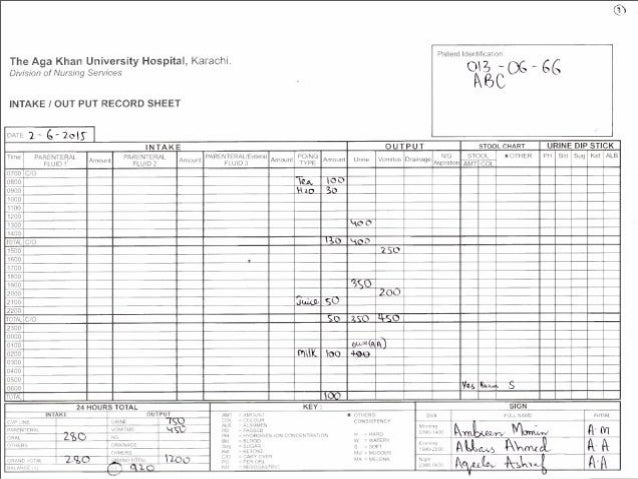 The Aga Khan University Hospital, Karachi.
Division of Nursing Services
Patient Identification
013 - 06 - 66
ABC
INTAKE / OUT PUT RECORD SHEET
DATE 2-6-2015
INTAKE OUTPUT STOOL CHART URINE DIP STICK
Time PARENTERAL FLUID 1 Amount PARENTERAL FLUID 2 Amount PARENTERAL/Enteral FLUID 3 Amount PO/NG TYPE Amount Urine Vomitus Drainage N/G Aspiration STOOL AMT/COL *OTHER PH Sug Ket ALB
0700 C/O
0800 Tea 100
0900 H2O 30
1000
1100
1200
1300 400
1400
TOTAL C/O 130 400
1500 250
1600
1700
1800
1900 350
2000 200
2100 Juice 50
2200
TOTAL C/O 50 350 450
2300
2400
0100
0200 Milk 100 400
0300
0400
0500
0600 S
TOTAL 100
24 HOURS TOTAL KEY SIGN
INTAKE OUTPUT
CVP LINE URINE 750
PARENTERAL VOMITUS 450
ORAL 280 NG
OTHERS DRAINAGE
OTHERS
GRAND TOTAL 280 GRAND TOTAL 1200
BALANCE 920
* OTHERS
CONSISTENCY
H = HARD
W = WATERY
S = SOFT
MU = MUCOUS
MA = MALENA
FULL NAME INITIAL
Morning Ambreen Momin A.M
Evening Abbas Ahmed A.A
Night Aqeela Ashraf A.A